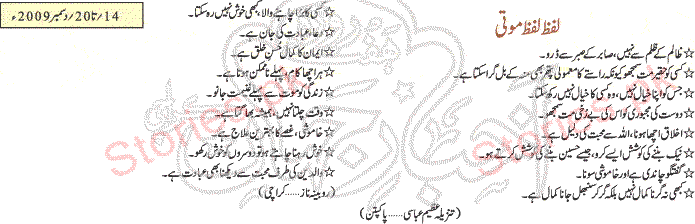 لفظ لفظ موتی
☆ ظالم کے ظلم سے نہیں، صابر کے صبر سے ڈرو۔
☆ کسی کو حقیر مت سمجھو کیونکہ راستے کا معمولی پتھر بھی منہ کے بل گرا سکتا ہے۔
☆ جس کو اپنا خیال نہیں، وہ کسی کا خیال نہیں رکھ سکتا۔
☆ دوست کی مجبوری کو اس کی بے رخی مت سمجھو۔
☆ اخلاق اچھا ہونا، اللہ سے محبت کی دلیل ہے۔
☆ نیک بننے کی کوشش ایسے کرو، جیسے حسین بننے کی کوشش کرتے ہو۔
☆ گفتگو چاندی ہے اور خاموشی سونا۔
☆ کبھی نہ گرنا کمال نہیں بلکہ گر کر سنبھل جانا کمال ہے۔
(تنزیلہ عظیم عباسی..... پاکپتن)
☆ کسی کا برا چاہنے والا، کبھی خوش نہیں رہ سکتا۔
☆ دعا، عبادت کی جان ہے۔
☆ ایمان کا کمال حُسنِ خلق ہے۔
☆ ہر اچھا کام، پہلے ناممکن ہوتا ہے۔
☆ زندگی کو موت سے پہلے غنیمت جانو۔
☆ وقت چلتا نہیں، ہمیشہ بھاگتا ہے۔
☆ خاموشی، غصے کا بہترین علاج ہے۔
☆ خوش رہنا چاہتے ہو تو دوسروں کو خوش رکھو۔
☆ والدین کی طرف محبت سے دیکھنا بھی عبادت ہے۔
(روبینہ ناز..... کراچی)
14/تا20/دسمبر2009ء